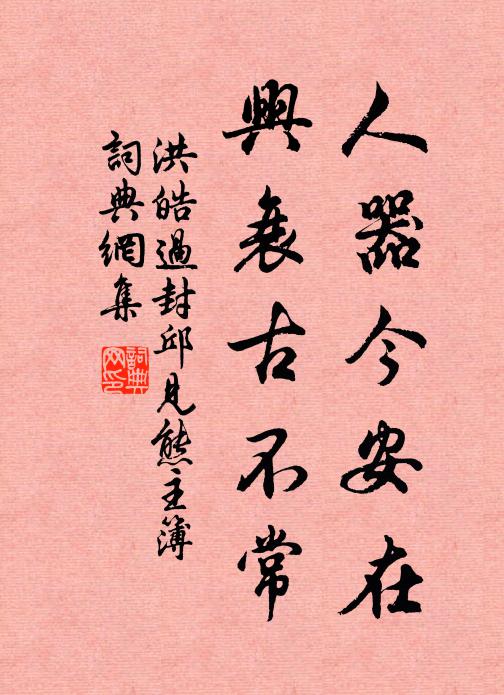 人器今安在
興衰古不常
洪皓過封邱見熊主簿
詞典網集
詞典
网印